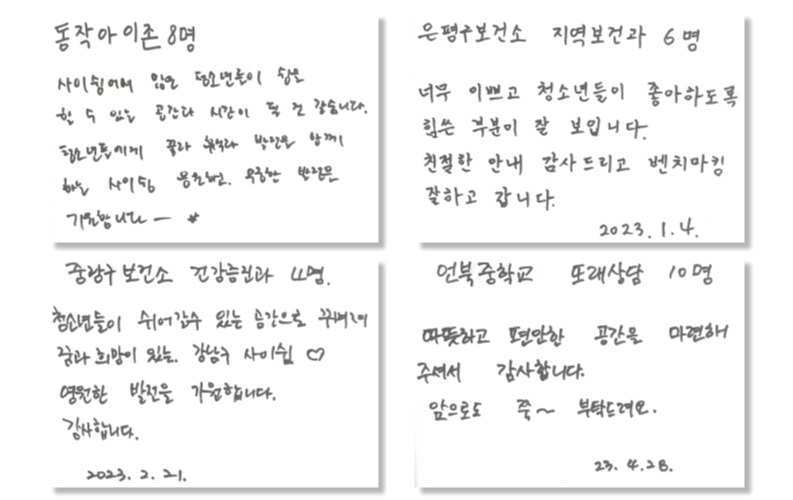 동작아이존 8명
사이쉼에서 많은 청소년들이 쉼을
할 수 있는 공간과 시간이 될 것 같습니다.
청소년들에게 꿈과 휴식과 발전을 함께
하는 사이쉼 응원하고. 무궁한 발전을
기원합니다 ㅡ *
은평구보건소 지역보건과 6명
너무 이쁘고 청소년들이 좋아하도록
힘쓴 부분이 잘 보입니다.
친절한 안내 감사드리고 벤치마킹
잘하고 갑니다.
2023. 1. 4.
중랑구보건소 건강증진과 11명.
청소년들이 쉬어갈수 있는 공간으로
꿈과 희망이 있는. 강남구 사이쉼 ♡
영원한 발전을 기원합니다.
감사합니다.
2023. 2. 21.
언북중학교 또래상담 10명
따뜻하고 편안한 공간을 마련해
주셔서 감사합니다.
앞으로도 쭉~ 부탁드려요.
23. 4. 28.